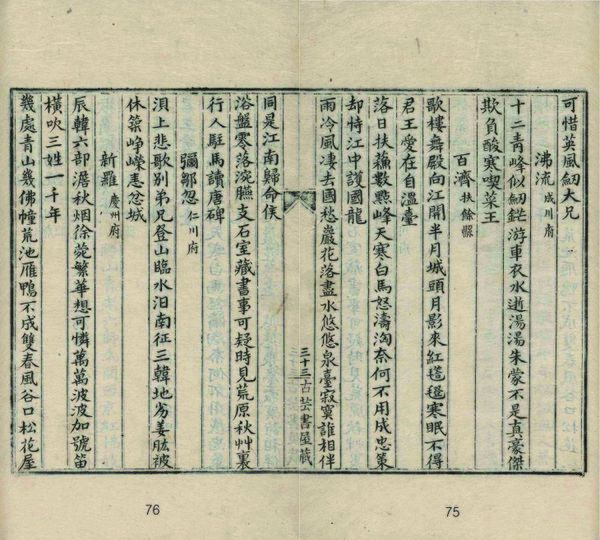 可惜英風劒大兄
沸流 成川府
十二青峰似劒鋩游車衣水逝湯湯朱蒙不是真豪傑
欺負酸寒喫菜王
百濟 扶餘縣
歌樓舞殿向江開半月城頭月影來紅㲪㲪寒眠不得
君王愛在自溫臺
落日扶蘓數點峰天寒白馬怒濤洶奈何不用成忠策
却恃江中護國龍
雨冷風凄去國愁巖花落盡水悠悠泉臺寂寞誰相伴
同是江南歸命侯
三十三古芸書屋藏
浴盤零落涴臙支石室藏書事可疑時見荒原秋艸裏
行人駐馬讀唐碑
彌鄒忽 仁川府
浿上悲歌別弟兄登山臨水汨南征三韓地劣姜肱被
休築崢嶸恚忿城
新羅 慶州府
辰韓六部澹秋烟徐菀繁華想可憐萬萬波波加號笛
橫吹三姓一千年
幾處青山幾佛幢荒池雁鴨不成雙春風谷口松花屋
75
76